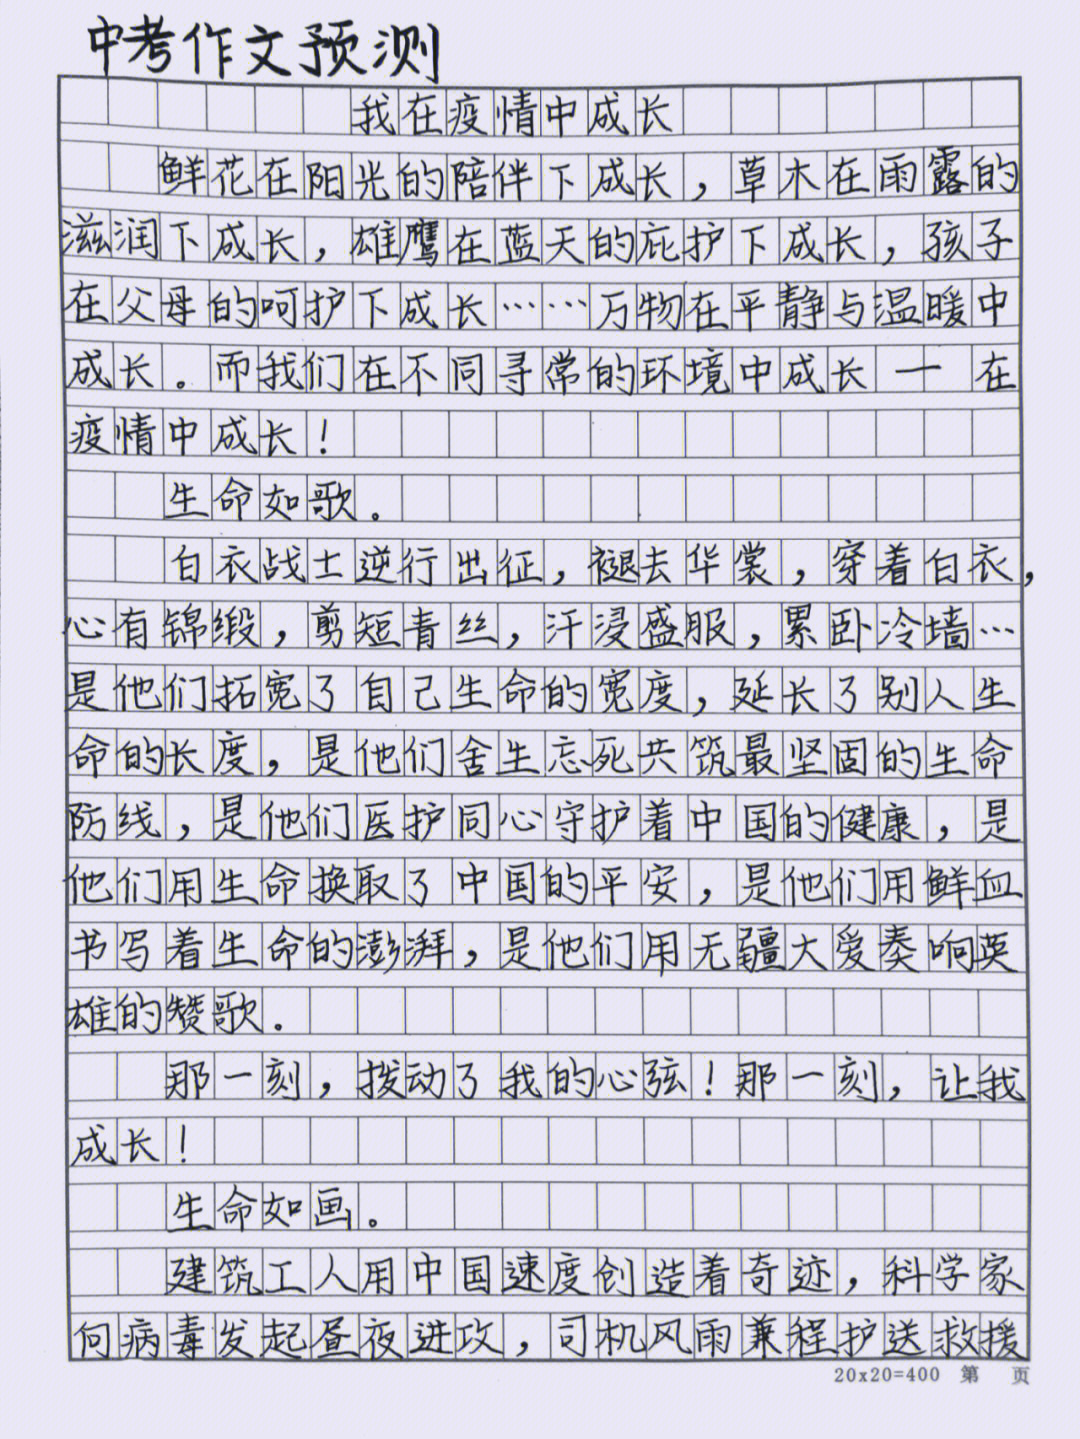 中考作文预测
我在疫情中成长
鲜花在阳光的陪伴下成长，草木在雨露的
滋润下成长，雄鹰在蓝天的庇护下成长，孩子
在父母的呵护下成长……万物在平静与温暖中
成长。而我们在不同寻常的环境中成长—在
疫情中成长！
生命如歌。
白衣战士逆行出征，褪去华裳，穿着白衣，
心有锦缎，剪短青丝，汗浸盛服，累卧冷墙…
是他们拓宽了自己生命的宽度，延长了别人生
命的长度，是他们舍生忘死共筑最坚固的生命
防线，是他们医护同心守护着中国的健康，是
他们用生命换取了中国的平安，是他们用鲜血
书写着生命的澎湃，是他们用无疆大爱奏响英
雄的赞歌。
那一刻，拨动了我的心弦！那一刻，让我
成长！
生命如画。
建筑工人用中国速度创造着奇迹，科学家
向病毒发起昼夜进攻，司机风雨兼程护送救援
20x20=400 第 页